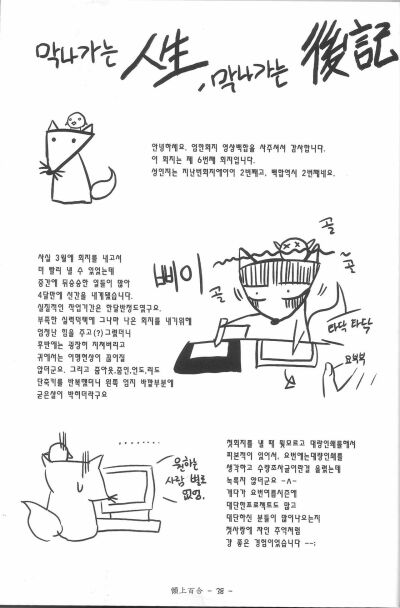 막나가는 人生, 막나가는 後記
안녕하세요. 엄한회지 영상백합을 사주셔서 감사합니다.
이 회지는 제 6번째 회지입니다.
성인지는 지난번회지에이어 2번째고, 백합역시 2번째네요.
사실 3월에 회지를 내고서
더 빨리 낼 수 있었는데
중간에 뒤숭숭한 일들이 많아
4달만에 신간을 내게됐습니다.
실질적인 작업기간은 한달반정도였구요.
부족한 실력덕택에 그나마 나은 회지를 내기위해
엄청난 힘을 주고(?)그렸더니
후반에는 굉장히 지쳐버리고
귀에서는 이명현상이 끊이질
않더군요. 그리고 줌아웃,줌인,언도,리도
단축키를 반복했더니 왼쪽 엄지 바깥부분에
굳은살이 박히더라구요
삐이
골
골
골
타닥 타닥
요북북
.......
원하는
사람 별로
없엉.
첫회지를 낼 때 뭣모르고 대량인쇄를해서
피본적이 있어서, 요번에는대량인쇄를
생각하고 수량조사글이란걸 올렸는데
녹록지 않더군요 -ㅅ-
게다가 요번여름시즌에
대단한프로젝트도 많고
대단하신 분들이 많이나오는지
첫사랑에 차인 추억처럼
걍 좋은 경험이었습니다 --;
領上百合 - 38 -